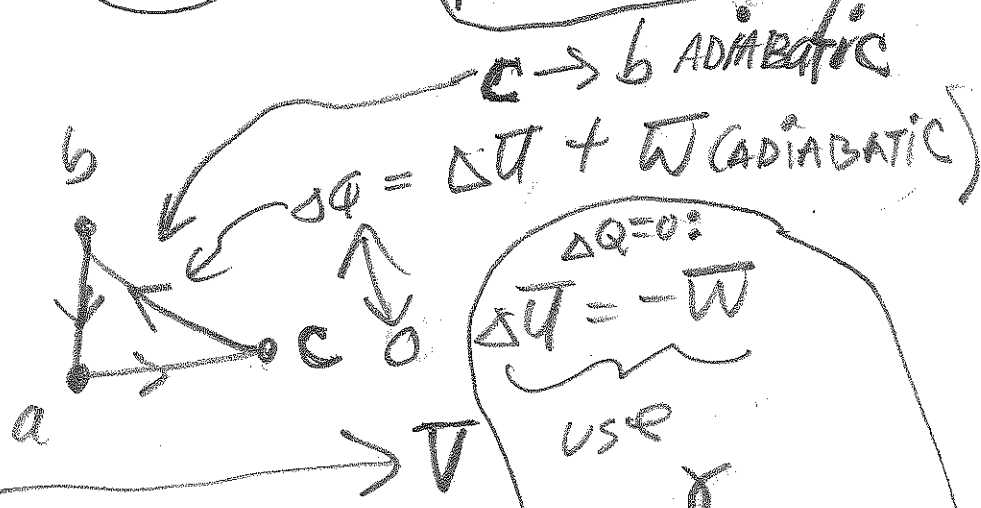 c → b ADiABatic
b
ΔQ = ΔU + W (ADiABATiC)
ΔQ=0:
ΔU = -W
c 0
a
use
V
γ